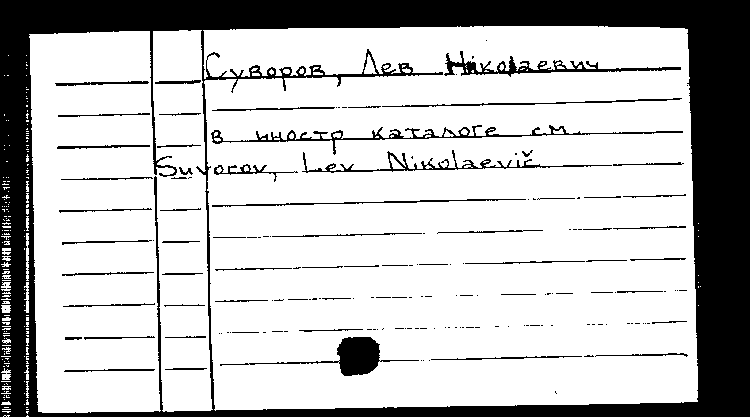 Суворов, Лев Николаевич
в иностр каталоге см.
Suvorov, Lev Nikolaevič